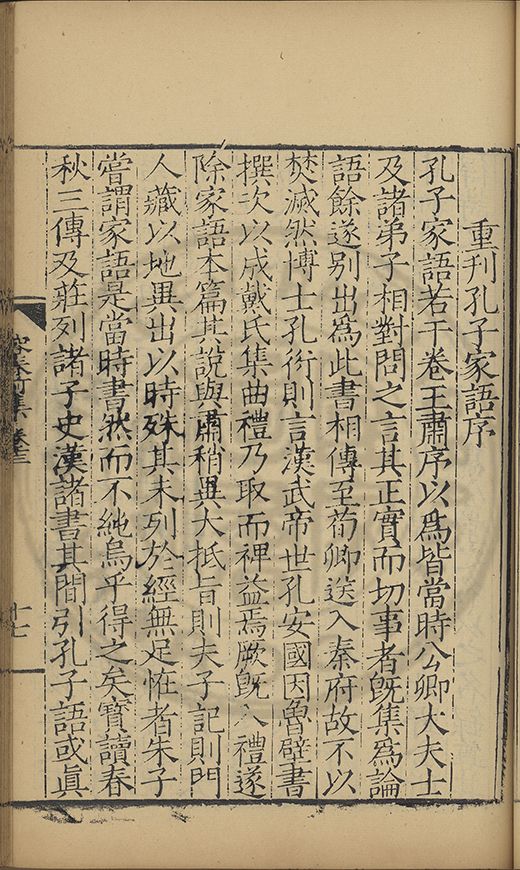 重刊孔子家語序
孔子家語若干卷王肅序以爲皆當時公卿大夫士
及諸弟子相對問之言其正實而切事者旣集爲論
語餘遂別出爲此書相傳至荀卿送入秦府故不以
焚滅然博士孔衍則言漢武帝世孔安國因魯壁書
撰次以成戴氏集曲禮乃取而裨益焉厥旣入禮遂
除家語本篇其說與肅稍異大抵旨則夫子記則門
人藏以地異出以時殊其未列於經無足恠者朱子
嘗謂家語是當時書然而不純烏乎得之矣寶讀春
秋三傳及莊列諸子史漢諸書其間引孔子語或眞
十七